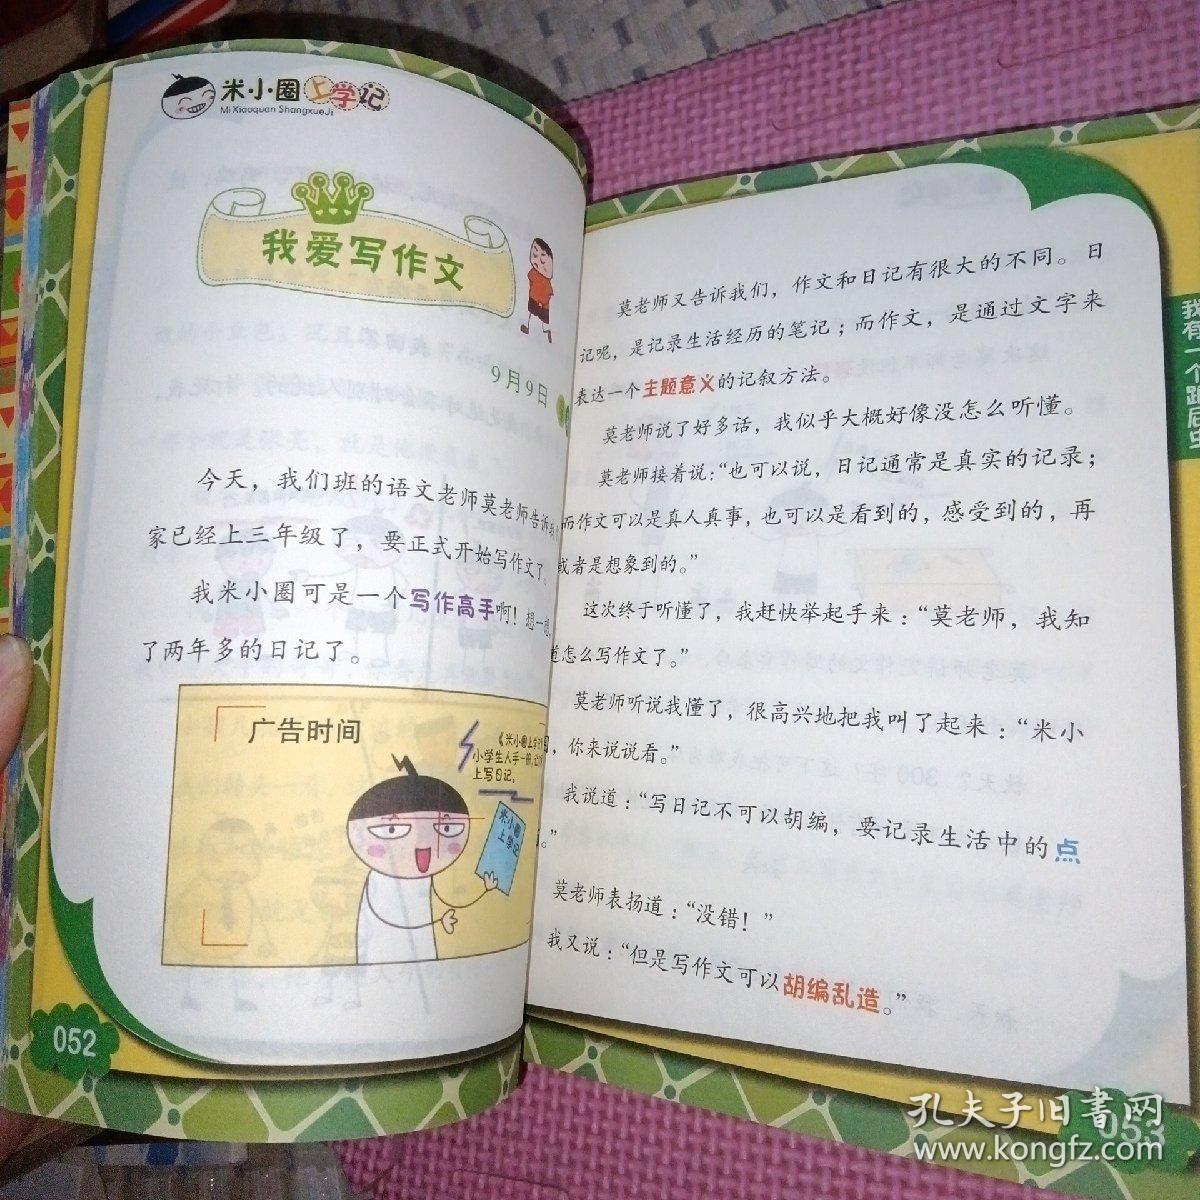 米小圈上学记
Mi Xiaoquan ShangxueJi
我爱写作文
9月9日
今天，我们班的语文老师莫老师告诉我
家已经上三年级了，要正式开始写作文了。
我米小圈可是一个写作高手啊！想一想，
了两年多的日记了。
广告时间
《米小圈上学记》
小学生人手一册，让
上写日记。
米小圈
上学记
052
莫老师又告诉我们，作文和日记有很大的不同。日
记呢，是记录生活经历的笔记；而作文，是通过文字来
表达一个主题意义的记叙方法。
莫老师说了好多话，我似乎大概好像没怎么听懂。
莫老师接着说：“也可以说，日记通常是真实的记录；
而作文可以是真人真事，也可以是看到的，感受到的，再
或者是想象到的。”
这次终于听懂了，我赶快举起手来：“莫老师，我知
道怎么写作文了。”
莫老师听说我懂了，很高兴地把我叫了起来：“米小
，你来说说看。”
我说道：“写日记不可以胡编，要记录生活中的点
。”
莫老师表扬道：“没错！”
我又说：“但是写作文可以胡编乱造。”
我有一个跟屁虫
053
孔夫子旧书网
www.kongfz.com